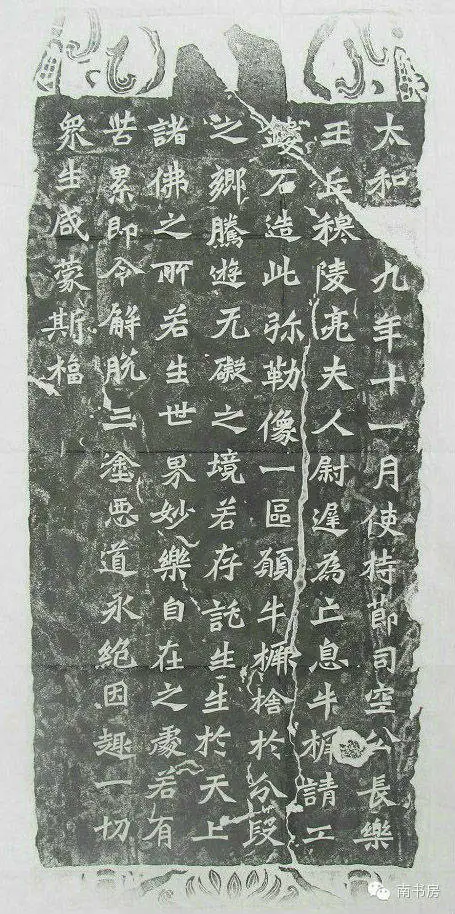 太和九年十一月使持節司空公長樂
王丘穆陵亮夫人尉遲為亡息牛橛請工
鏤石造此弥勒像一區願牛橛捨於分段
之鄉騰遊无礙之境若存託生生於天上
諸佛之所若生世界妙樂自在之處若有
苦累即令解脫三塗惡道永絕因趣一切
衆生咸蒙斯福
南书房